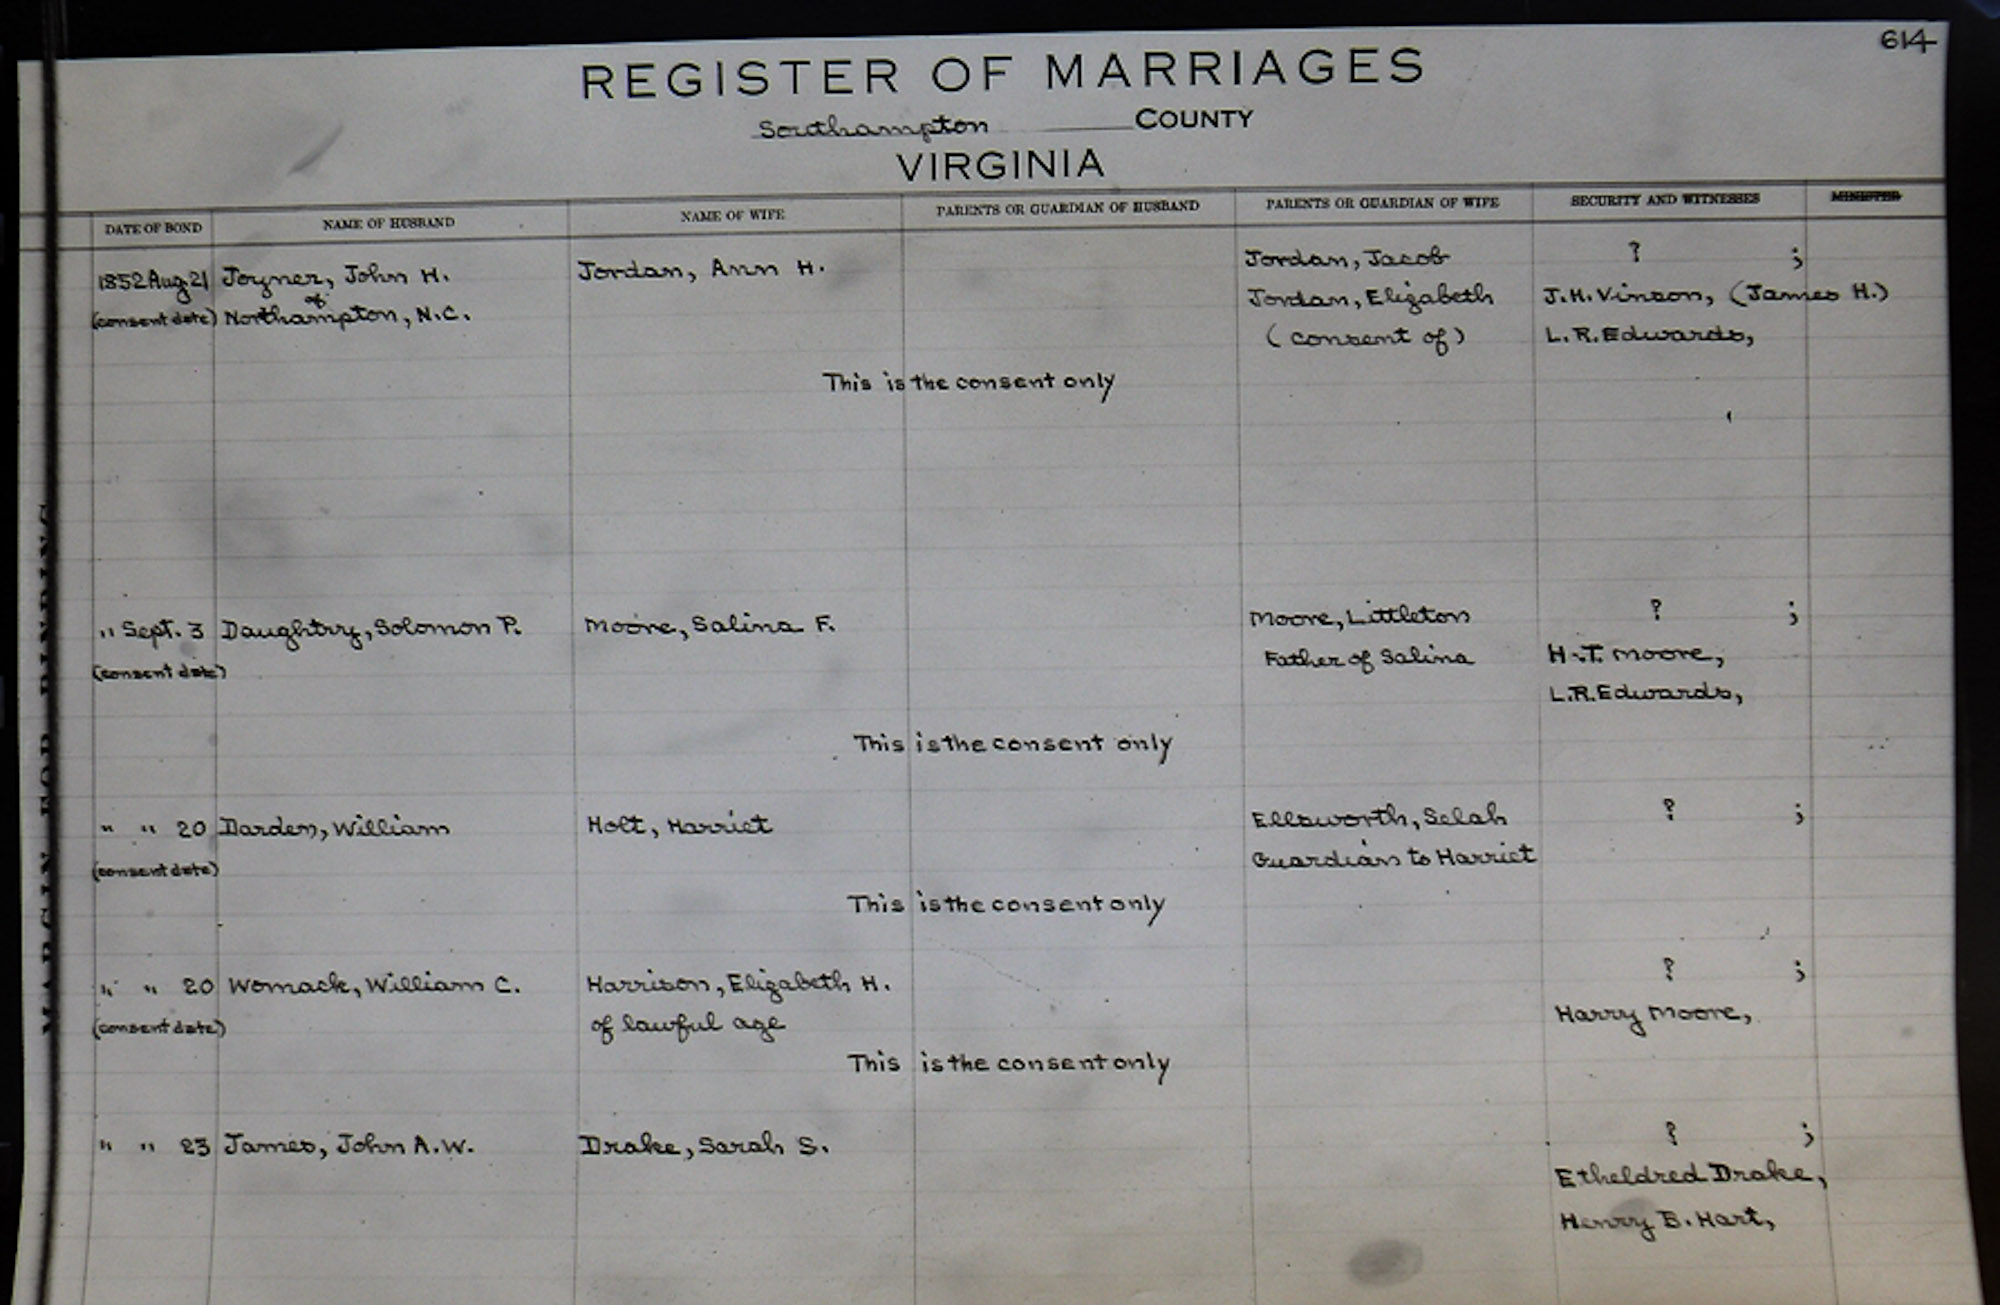 614
REGISTER OF MARRIAGES
Southampton COUNTY
VIRGINIA
DATE OF BOND NAME OF HUSBAND NAME OF WIFE PARENTS OR GUARDIAN OF HUSBAND PARENTS OR GUARDIAN OF WIFE SECURITY AND WITNESSES MINISTER
1852 Aug. 21 Joyner, John H. Jordan, Ann H. Jordan, Jacob ? ;
of
(consent date) Northampton, N.C. Jordan, Elizabeth J.H. Vinson, (James H.)
(consent of) L.R. Edwards,
This is the consent only
" Sept. 3 Daughtry, Solomon P. Moore, Salina F. Moore, Littleton ? ;
(consent date) Father of Salina H.T. Moore,
L.R. Edwards,
This is the consent only
" " 20 Darden, William Holt, Harriet Ellsworth, Selah ? ;
(consent date) Guardian to Harriet
This is the consent only
" " 20 Womack, William C. Harrison, Elizabeth H. ? ;
(consent date) of lawful age Harry Moore,
This is the consent only
" " 23 James, John A.W. Drake, Sarah S. ? ;
Etheldred Drake,
Henry B. Hart,
MARGIN FOR BINDING